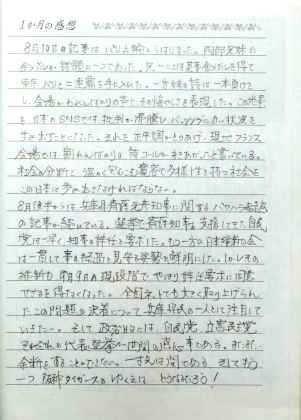 1か月の感想
8月10日の記事は、パリ五輪からはじまりました。阿部兄妹の
金メダルが話題の一つであった。兄一二三は見事金メダルを得て
二連覇を手に入れた。一方妹の詩は一本負けを
し、会場がわれんばかりの声で、その悔やしさを表現した。この光景
を日本のSNSでは批判が沸騰し、バッシングに近い状況を
生み出すことになった。それを正平調がとりあげ、現地フランス
会場では、割れんばかりの詩コールがまきおこったと書いている。
社会の分断と
この日本は歩みださなければならない。
8月後半からは兵庫県斎藤元彦知事に関するパワハラ疑惑
の記事が続いている。選挙で斎藤知事を支援してきた自民
党は早く知事の辞任を要求した。もう一方の日本維新の会
は一貫して事の経過を見守る姿勢を鮮明にした。しかしその
維新も、9月9日現段階で、やはり辞任要求に同意
せざるを得なくなった。全国ネットでも大きく取り上げられ
たこの問題の決着について兵庫県民の一人として注目して
いきたい。そして政治日程には、自民党、立憲民主党
それぞれの代表選挙が世間の関心事である。まだまだ
余断をすることはできない。一寸先は闇である。そしてもう
一つ、阪神タイガースのゆくえは、どうなるだろう!